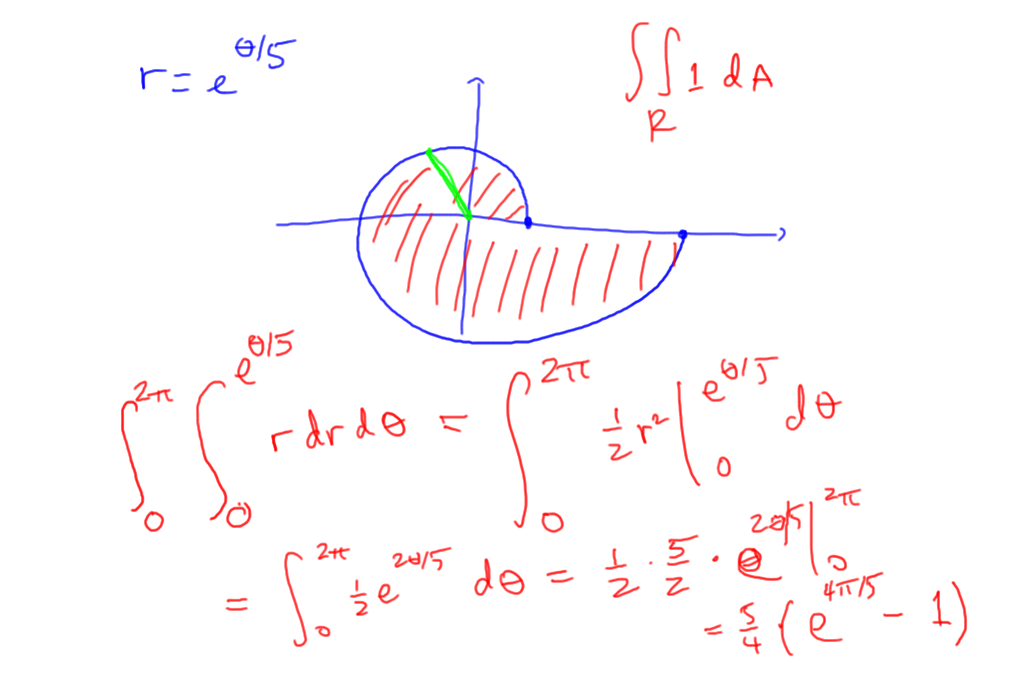 r = e^{θ/5}
∫∫_R 1 dA
∫_0^{2π} ∫_0^{e^{θ/5}} r dr dθ = ∫_0^{2π} ½ r² |_0^{e^{θ/5}} dθ
= ∫_0^{2π} ½ e^{2θ/5} dθ = ½ · 5/2 · e^{2θ/5} |_0^{2π}
= 5/4 (e^{4π/5} - 1)